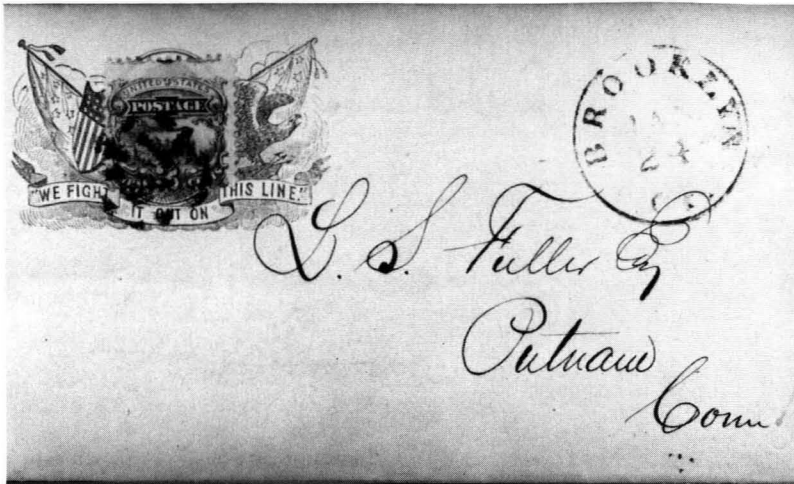 UNITED STATES
POSTAGE
"WE FIGHT
IT OUT ON
THIS LINE."
BROOKLYN
24
L. S. Fuller Esq
Putnam
Conn